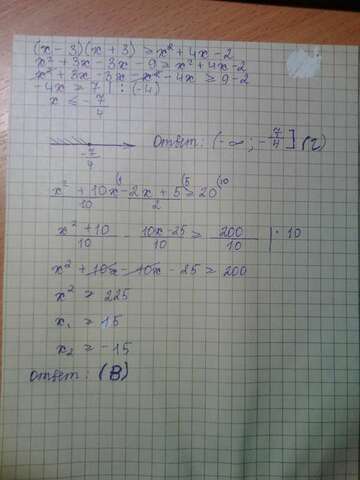 (x - 3)(x + 3) ≥ x² + 4x - 2
x² + 3x - 3x - 9 ≥ x² + 4x - 2
x² + 3x - 3x - x² - 4x ≥ 9 - 2
-4x ≥ 7 | : (-4)
x ≤ - 7/4
-7/4
Ответ: (-∞; -7/4] (г)
(x² + 10x)/10 (1 - (2x + 5)/2 (5 ≥ 20 (10
(x² + 10)/10 - (10x - 25)/10 ≥ 200/10 | · 10
x² + 10x - 10x - 25 ≥ 200
x² ≥ 225
x₁ ≥ 15
x₂ ≥ -15
ответ: (В)